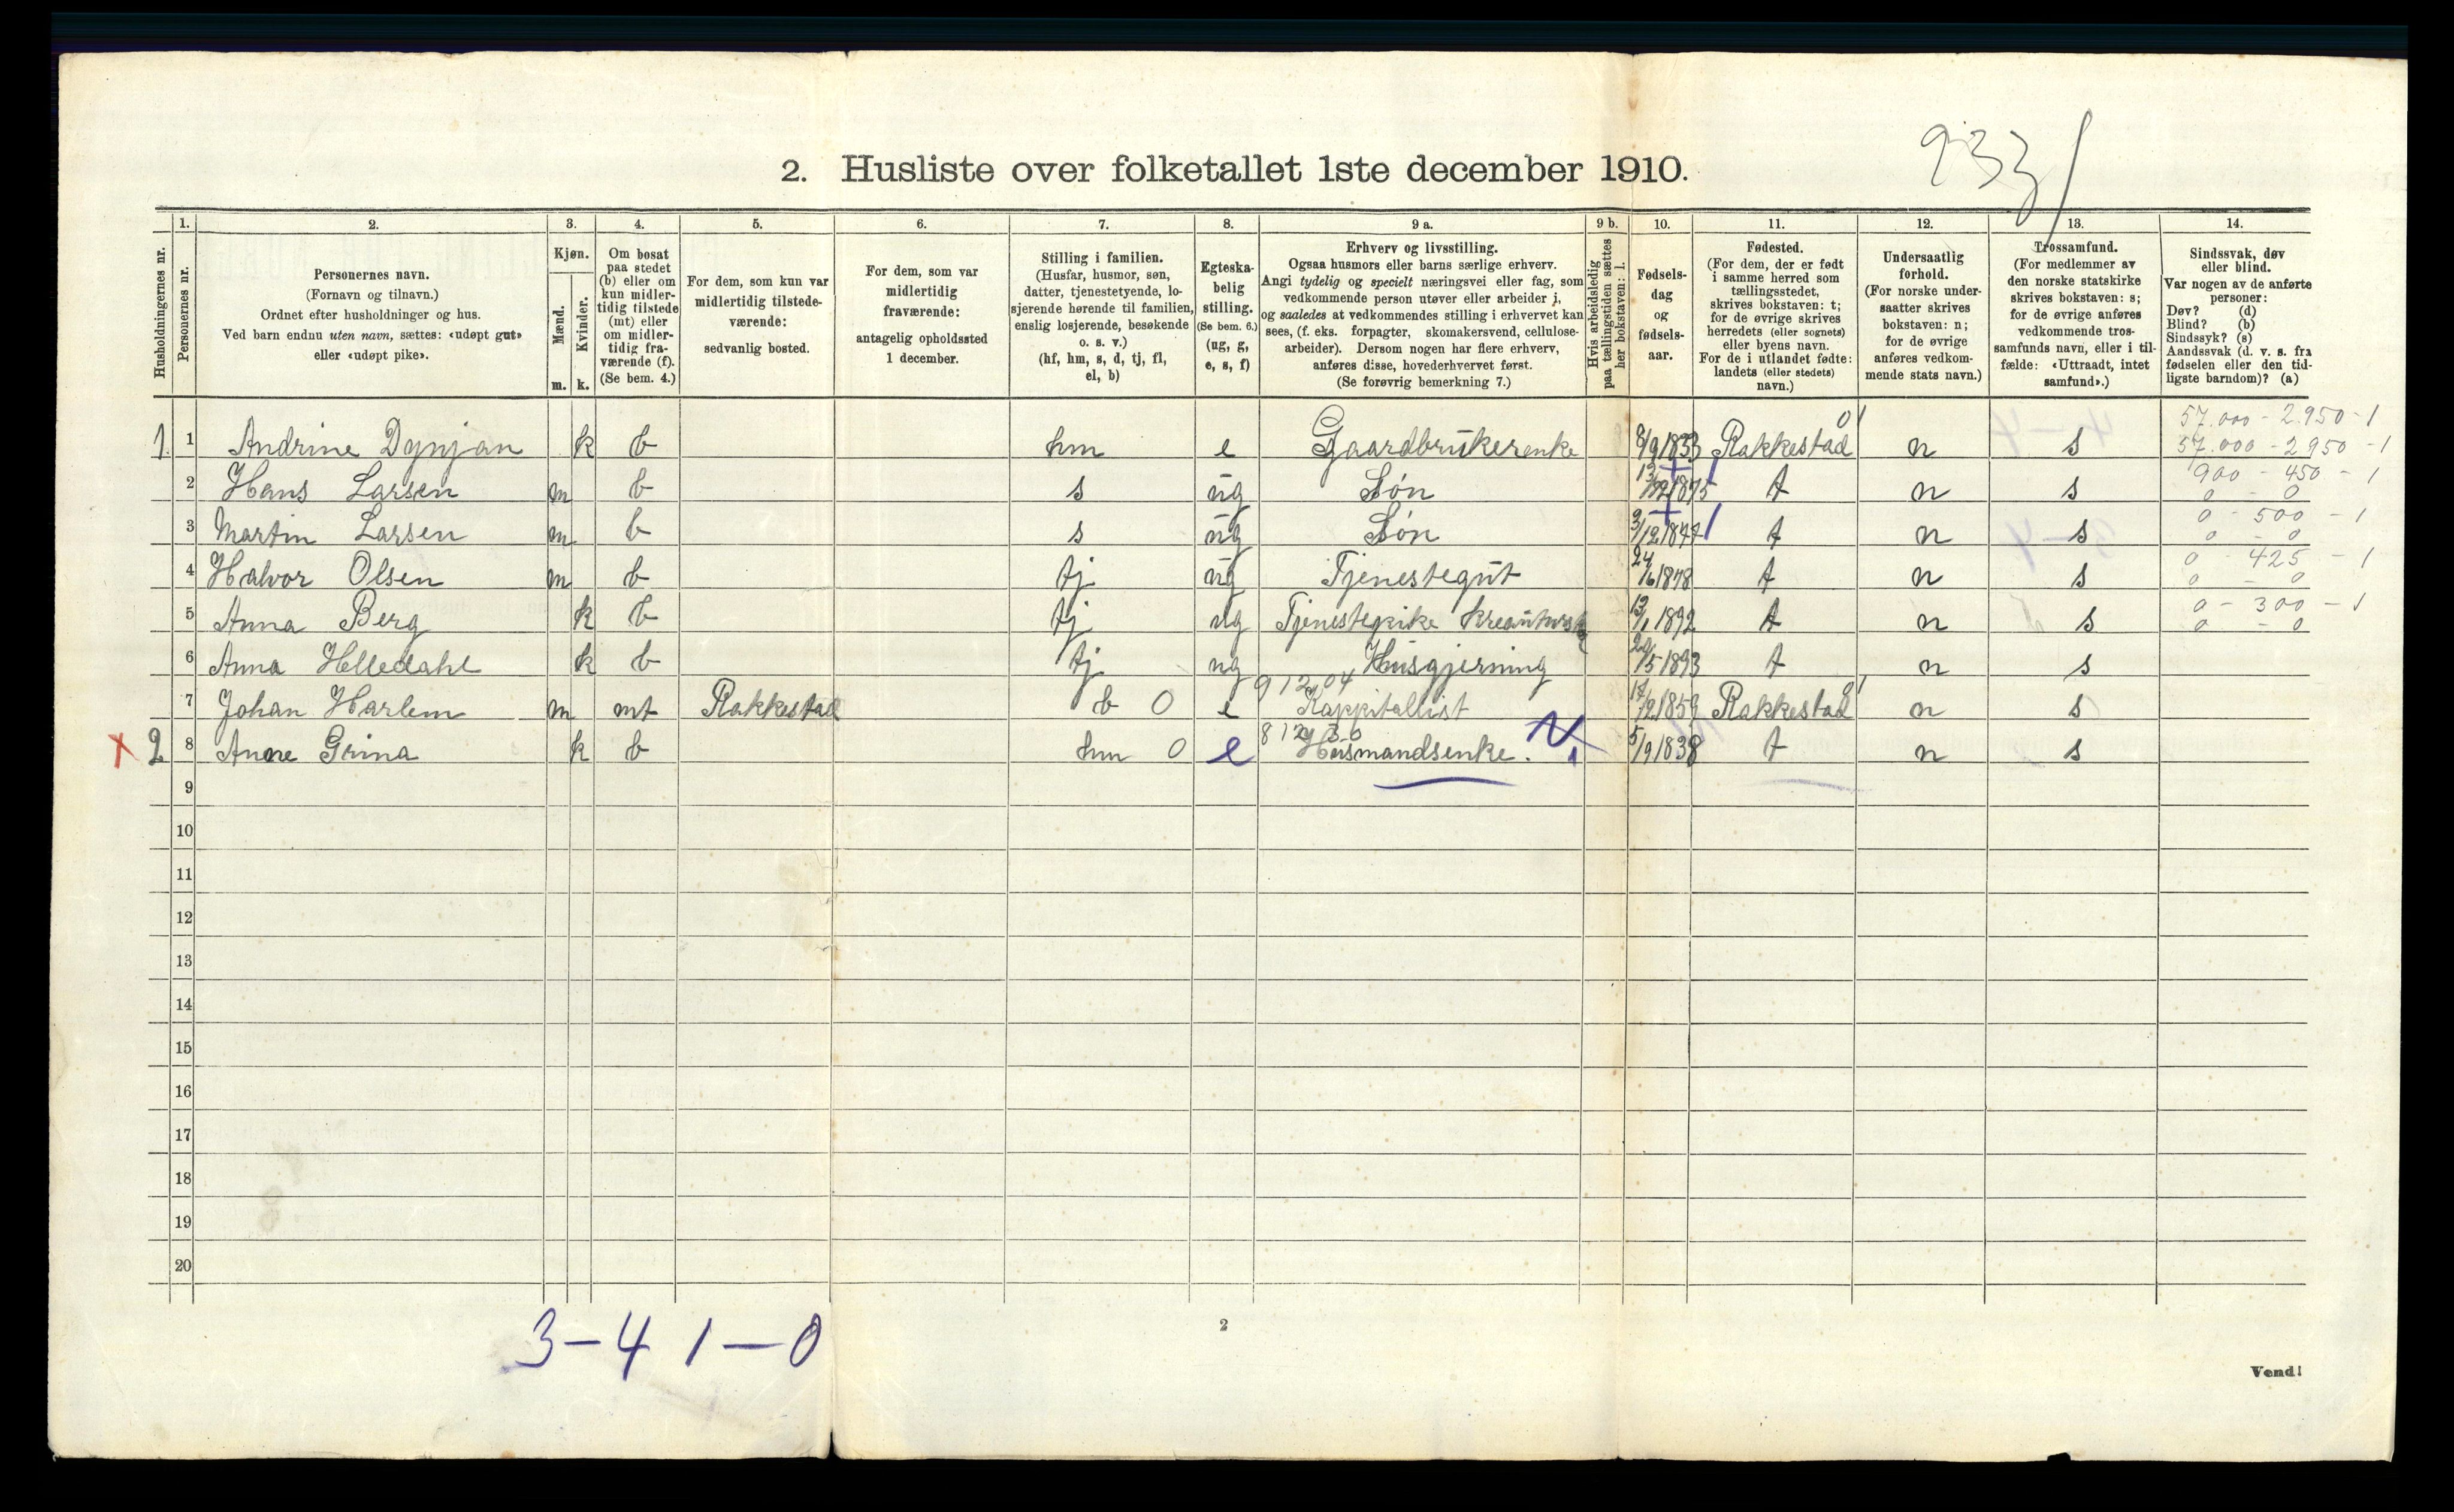 2. Husliste over folketallet 1ste december 1910.
933
Husholdningernes nr.
1.
Personernes nr.
2.
Personernes navn.
(Fornavn og tilnavn.)
Ordnet efter husholdninger og hus.
Ved barn endnu uten navn, sættes: «udøpt gut»
eller «udøpt pike».
3.
Kjøn.
Mænd.
Kvinder.
m. k.
4.
Om bosat
paa stedet
(b) eller om
kun midler-
tidig tilstede
(mt) eller
om midler-
tidig fra-
værende (f).
(Se bem. 4.)
5.
For dem, som kun var
midlertidig tilstede-
værende:
sedvanlig bosted.
6.
For dem, som var
midlertidig
fraværende:
antagelig opholdssted
1 december.
7.
Stilling i familien.
(Husfar, husmor, søn,
datter, tjenestetyende, lo-
sjerende hørende til familien,
enslig losjerende, besøkende
o. s. v.)
(hf, hm, s, d, tj, fl,
el, b)
8.
Egteska-
belig
stilling.
(Se bem. 6.)
(ug, g,
e, s, f)
9 a.
Erhverv og livsstilling.
Ogsaa husmors eller barns særlige erhverv.
Angi tydelig og specielt næringsvei eller fag, som
vedkommende person utøver eller arbeider i,
og saaledes at vedkommendes stilling i erhvervet kan
sees, (f. eks. forpagter, skomakersvend, cellulose-
arbeider). Dersom nogen har flere erhverv,
anføres disse, hovederhvervet først.
(Se forøvrig bemerkning 7.)
9 b.
Hvis arbeidsledig
paa tællingstiden sættes
her bokstaven: l.
10.
Fødsels-
dag
og
fødsels-
aar.
11.
Fødested.
(For dem, der er født
i samme herred som
tællingsstedet,
skrives bokstaven: t;
for de øvrige skrives
herredets (eller sognets)
eller byens navn.
For de i utlandet fødte:
landets (eller stedets)
navn.)
12.
Undersaatlig
forhold.
(For norske under-
saatter skrives
bokstaven: n;
for de øvrige
anføres vedkom-
mende stats navn.)
13.
Trossamfund.
(For medlemmer av
den norske statskirke
skrives bokstaven: s;
for de øvrige anføres
vedkommende tros-
samfunds navn, eller i til-
fælde: «Uttraadt, intet
samfund».)
14.
Sindssvak, døv
eller blind.
Var nogen av de anførte
personer:
Døv? (d)
Blind? (b)
Sindssyk? (s)
Aandssvak (d. v. s. fra
fødselen eller den tid-
ligste barndom)? (a)
57.000 - 2.950 - 1
1 1 Andrine Dynjan k b hm e Gaardbrukerenke 8/9 1833 Rakkestad n s 57.000 - 2950 - 1
900 - 450 - 1
2 Hans Larsen m b s ug Søn 13/12 1875 t n s 0 - 0
0 - 500 - 1
3 Martin Larsen m b s ug Søn t n s 0 - 0
0 - 425 - 1
4 Halvor Olsen m b tj ug Tjenestegut 24/6 1878 t n s 0 - 0
0 - 300 - 1
5 Anna Berg k b tj ug Tjenestepike 13/1 1892 t n s 0 - 0
6 Anna Helledahl k b tj ug Husgjerning 20/5 1893 t n s
9 12 04
7 Johan Harlem m mt Rakkestad b 0 e Kappitallist 17/2 1859 Rakkestad n s
8 12 30
x 2 8 Anne Grina k b hm 0 e Husmandsenke. N 1 5/9 1838 t n s
9
10
11
12
13
14
15
16
17
18
19
20
3-4 1-0
2
Vend!